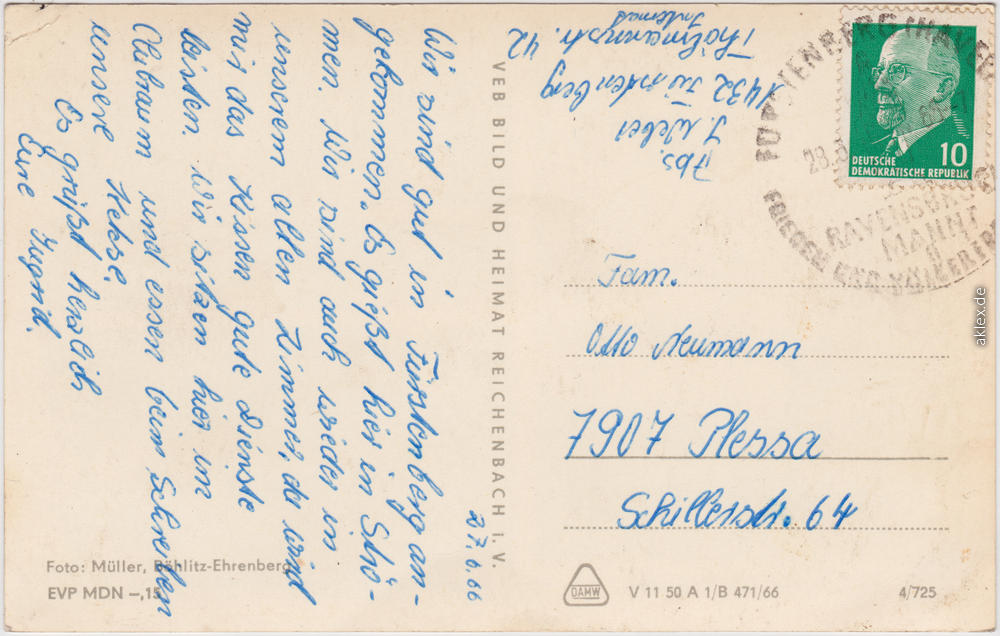 27.6.66
Wir sind gut in Fürstenberg an-
gekommen. Es gießt hier in Strö-
men. Wir sind auch wieder in
unserem alten Zimmer, da wird
mir das Kissen gute Dienste
leisten. Wir sitzen hier im
Clubraum und essen beim Schreiben
unsere Kekse.
Es grüßt herzlich
Eure Ingrid.
Abs.
J. Weber
1432 Fürstenberg
Thälmannstr. 42
Internat
VEB BILD UND HEIMAT REICHENBACH I. V.
FÜRSTENBERG (HAVEL)
28.6
RAVENSBRÜCK
MAHNT
FRIEDEN UND VÖLKERFRE
DEUTSCHE
DEMOKRATISCHE REPUBLIK
10
Fam.
Otto Neumann
7907 Plessa
Schillerstr. 64
Foto: Müller, Böhlitz-Ehrenberg
EVP MDN –,15
DAMW
V 11 50 A 1/B 471/66
4/725
aklex.de